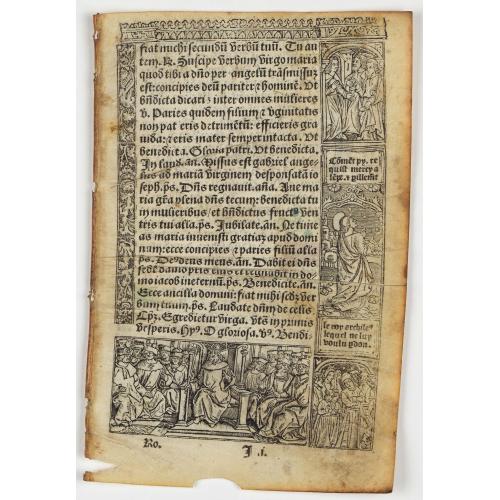 fiat michi secundū verbū tuū. Tu au
tem. R. Suscipe verbum virgo maria
quod tibi a dño per angelū trāsmissuz
est: concipies deū pariter ⁊ hominē. Ut
bñdicta dicaris inter omnes mulieres
v. Paries quidem filium ⁊ vginitatis
non patieris detrimētū: efficieris graui
da: ⁊ eris mater semper intacta. Ut
benedicta. Gloria patri. Ut benedicta.
In laud. añ. Missus est gabriel ange-
lus ad mariā virginem desponsatā io
seph. ps. Dñs regnauit. aña. Aue maria
grā plena dñs tecum: benedicta tu
in mulieribus: et bñdictus fruct⁹ ven
tris tui alla. ps. Jubilate. añ. Ne time
as maria inuenisti gratiaz apud domi
num: ecce concipies ⁊ paries filiū alla
ps. De⁹ deus meus. añ. Dabit ei dñs
sedē dauid pris eius et regnabit in do-
mo iacob in eternū. ps. Benedicite. añ.
Ecce ancilla domini: fiat mihi scdʒ ver
bum tuum. ps. Laudate dñm de celis
Cpʒ. Egredietur virga. vts in primis
vesperis. Hy⁹. O gloriosa. v⁹. Bendi-
Cōmēt py. re
quist mercy a
le roy archile⁹
lequel ne luy
voulu ydon.
Ro.
J .i.